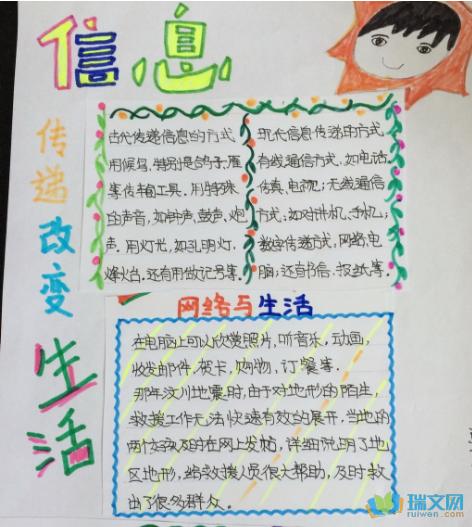 信息
传递改变
生活
古代传递信息的方式
用候鸟,特别是鸽子,雁
等传输工具.用特殊
的声音,如钟声,鼓声,炮
声.用灯光,如孔明灯,
烽火台,还有用做记号等.
现代信息传递的方式
有线通信方式,如电话,
传真,电视;无线通信
方式,如对讲机,手机;
数字传递方式,网络,电
脑;还有书信、报纸等.
网络与生活
在电脑上可以欣赏照片,听音乐,动画,
收发邮件,贺卡,购物,订餐等.
那年汶川地震时,由于对地形的陌生
救援工作无法快速有效的展开,当地的
两个孩及时在网上发帖,详细说明了地
区地形,给救援人员很大帮助,及时救
出了很多群众.
瑞文网
ruiwen.com